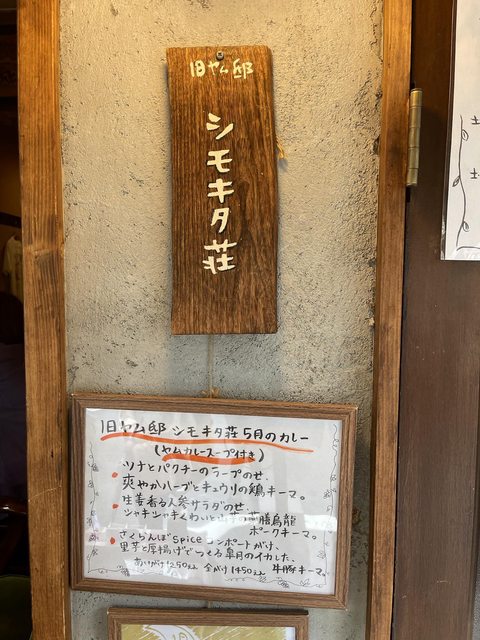 旧ヤム邸
シモキタ荘
旧ヤム邸 シモキタ荘 5月のカレー
(ヤムカレースープ付き)
ツナとパクチーのラープのせ、
爽やかハーブとキュウリの鶏キーマ。
生姜香る人参サラダのせ、
シャキシャキくわいと山芋の薬膳烏龍
ポークキーマ。
さくらんぼspiceコンポートがけ、
里芋と厚揚げでつくる皐月のイカした、
牛豚キーマ。
あいがけ1250えん 全がけ1450えん